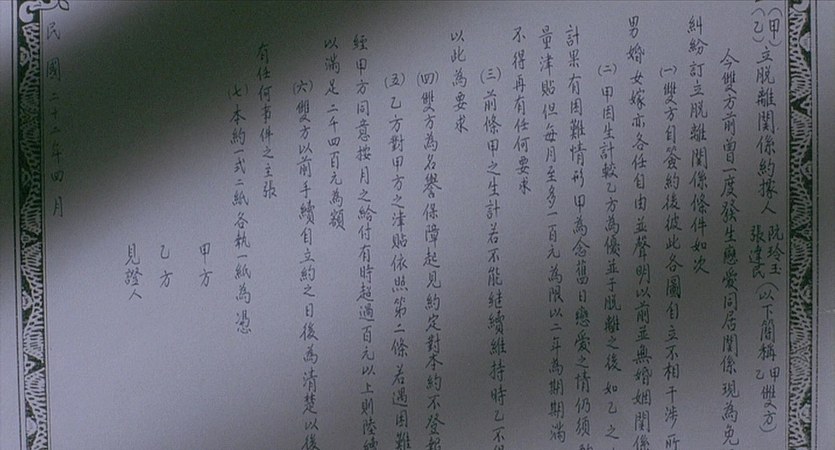 (甲)(乙)立脫離關係約據人 阮玲玉 張達民(以下簡稱甲乙雙方)
今雙方前曾一度發生戀愛同居關係現為免
糾紛訂立脫離關係條件如次
(一)雙方自簽約後彼此各圖自立不相干涉所
男婚女嫁亦各任自由並聲明以前並無婚姻關係
(二)甲因生計較乙方為優並于脫離之後如乙之
計果有困難情形甲為念舊日戀愛之情仍須
量津貼但每月至多一百元為限以二年為期期滿
不得再有任何要求
(三)前條甲之生計若不能繼續維持時乙不得
以此為要求
(四)雙方為名譽保障起見約定對本約不登報
(五)乙方對甲方之津貼依照第二條若遇困難
經甲方同意按月之給付有時超過百元以上則陸續
以滿足二千四百元為額
(六)雙方以前手續自立約之日後為清楚以後
有任何事件之主張
(七)本約一式二紙各執一紙為憑
甲方
乙方
見證人
民國二十二年四月